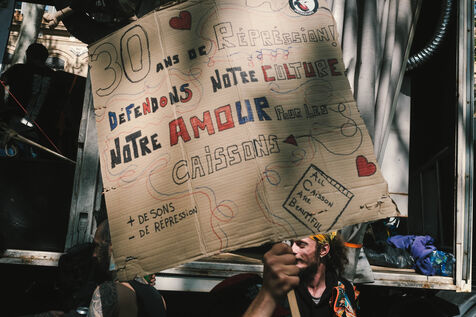 30 ANS DE RÉPRÉSSION!
DÉFENDONS NOTRE CULTURE
NOTRE AMOUR POUR LES
CAISSONS
+ DE SONS
- DE RÉPRESSION
ALL
CAISSON
ARE
BEAUTIFUL